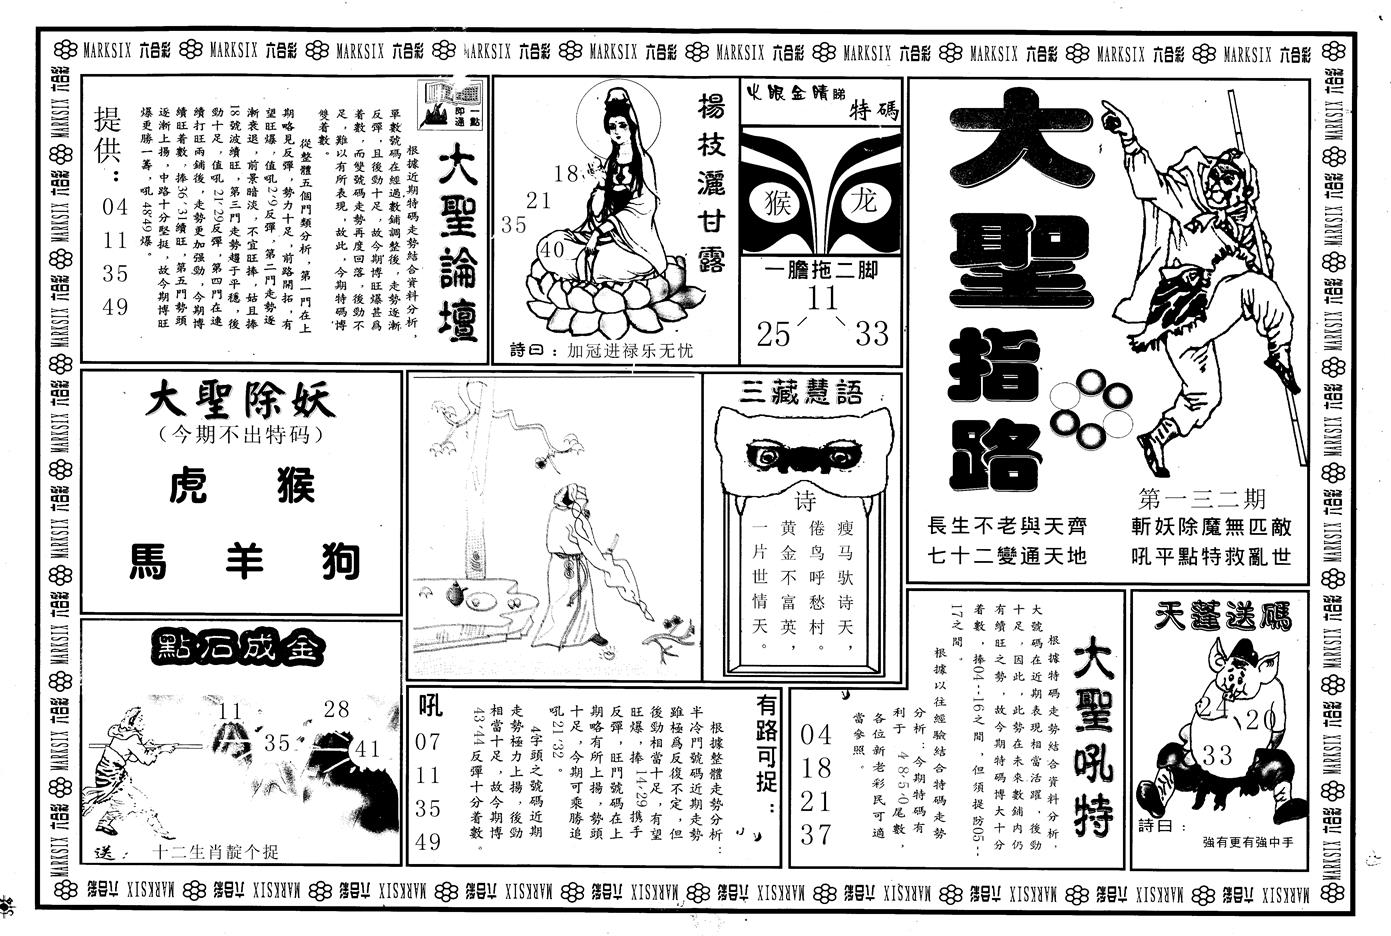 MARKSIX 六合彩 MARKSIX 六合彩 MARKSIX 六合彩 MARKSIX 六合彩 MARKSIX 六合彩 MARKSIX 六合彩 MARKSIX 六合彩 MARKSIX 六合彩 MARKSIX 六合彩 MARKSIX 六合彩
大聖指路
第一三二期
斬妖除魔無匹敵
吼平點特救亂世
長生不老與天齊
七十二變通天地
火眼金睛睇特碼
猴 龙
一膽拖二脚
11
25 33
楊枝灑甘露
18
21
35
40
詩曰：加冠进禄乐无忧
一點即通
大聖論壇
根據近期特碼走勢結合資料分析，
單數號碼在經過數鋪調整後，走勢逐漸
反彈，且後勁十足，故今期博旺爆甚爲
着數，而雙號碼走勢再度回落，後勁不
足，難以有所表現，故此，今期特碼博
雙着數。
從整體五個門類分析，第一門在上
期略見反彈，勢力十足，前路開拓，有
望旺爆，值吼2·9反彈，第二門走勢逐
漸衰退，前景暗淡，不宜旺捧，姑且捧
18號波續旺，第三門走勢趨于平穩，後
勁十足，值吼21·29反彈，第四門在連
續打旺兩鋪後，走勢更加强勁，今期博
續旺着數，捧36·31續旺，第五門勢頭
逐漸上揚，中路十分堅挺，故今期博旺
爆更勝一籌，吼48·49爆。
提供：
04
11
35
49
大聖除妖
（今期不出特码）
虎 猴
馬 羊 狗
三藏慧語
诗
瘦马驮诗天，
倦鸟呼愁村。
黄金不富英，
一片世情天。
點石成金
11
28
35
41
送：十二生肖靛个捉
有路可捉：
根據整體走勢分析：
半冷門號碼近期走勢
雖極爲反復不定，但
後勁相當十足，有望
旺爆，捧14·29携手
反彈，旺門號碼在上
期略有所上揚，勢頭
十足，今期可乘勝追
吼21·32。
4字頭之號碼近期
走勢極力上揚，後勁
相當十足，故今期博
43·44反彈十分着數。
吼
07
11
35
49
大聖吼特
根據特碼走勢結合資料分析，
大號碼在近期表現相當活躍，後勁
十足，因此，此勢在未來數鋪内仍
有續旺之勢，故今期特碼博大十分
着數，捧04--16之間，但須提防05--
17之間。
根據以往經驗結合特碼走勢
分析：今期特碼有
利于 4·8·5·0尾數，
各位新老彩民可適
當參照。
04
18
21
37
天蓬送碼
24
20
33
詩曰：
強有更有強中手